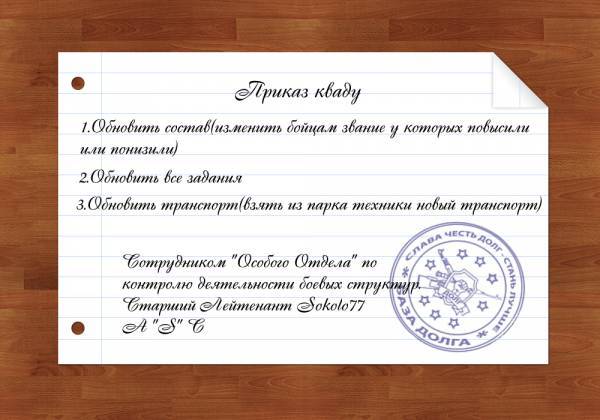 Приказ кваду
1.Обновить состав(изменить бойцам звание у которых повысили
или понизили)
2.Обновить все задания
3.Обновить транспорт(взять из парка техники новый транспорт)
Сотрудником "Особого Отдела" по
контролю деятельности боевых структур.
Старший Лейтенант Sokolo77
А "S" С
СЛАВА ЧЕСТЬ ДОЛГ - СТАНЬ ЛУЧШЕ
БАЗА ДОЛГА